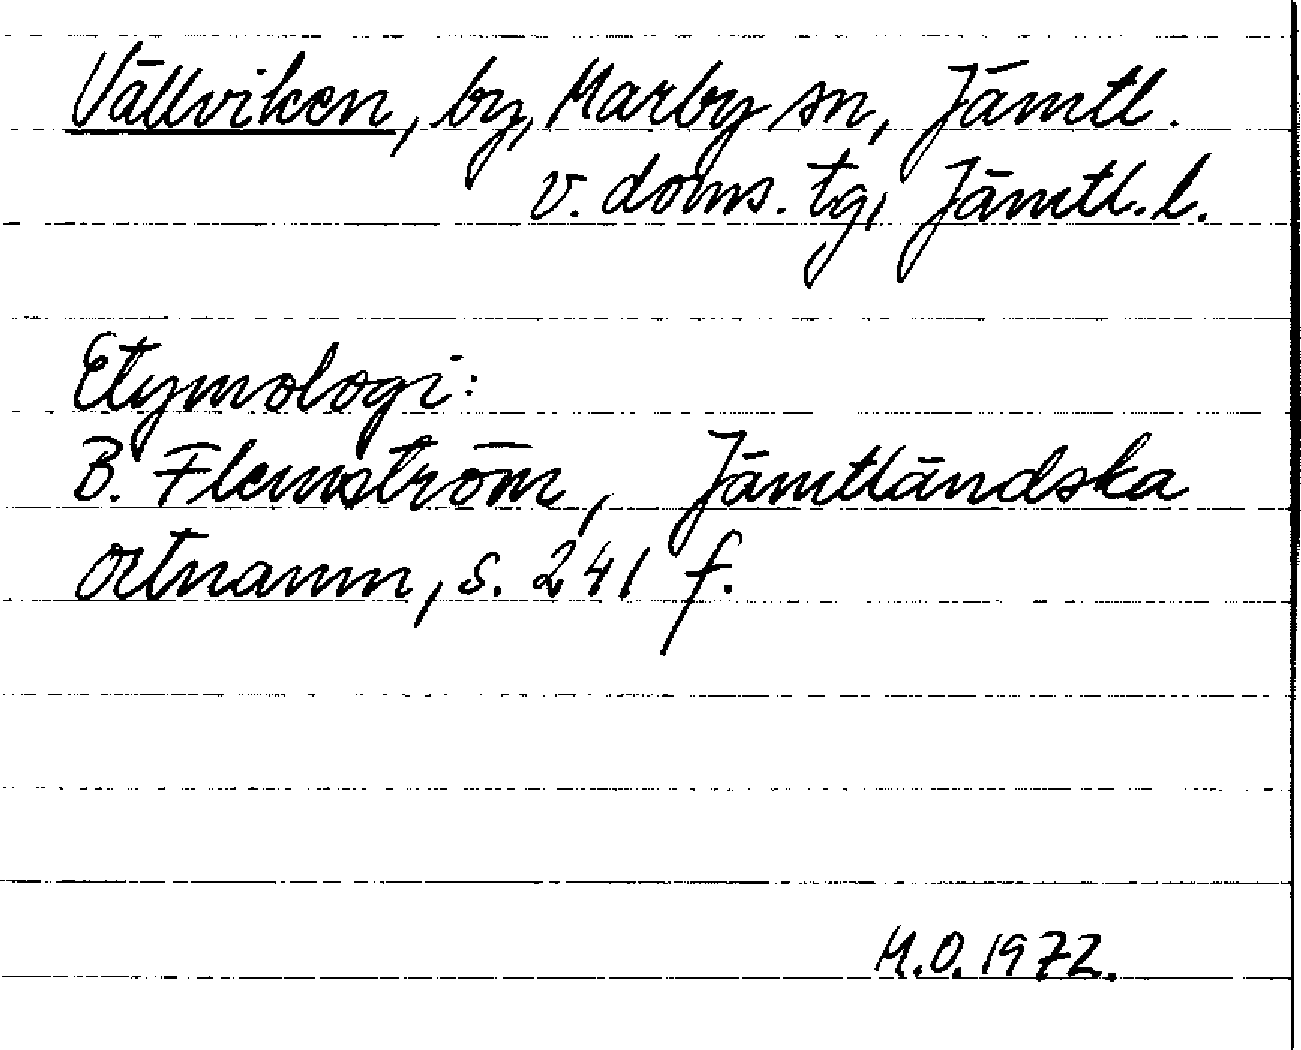 Vällviken, by, Marby sn, Jämtl.
v. doms. tg, Jämtl. l.
Etymologi:
B. Flemström, Jämtländska
ortnamn, s. 241 f.
M.O. 1972.